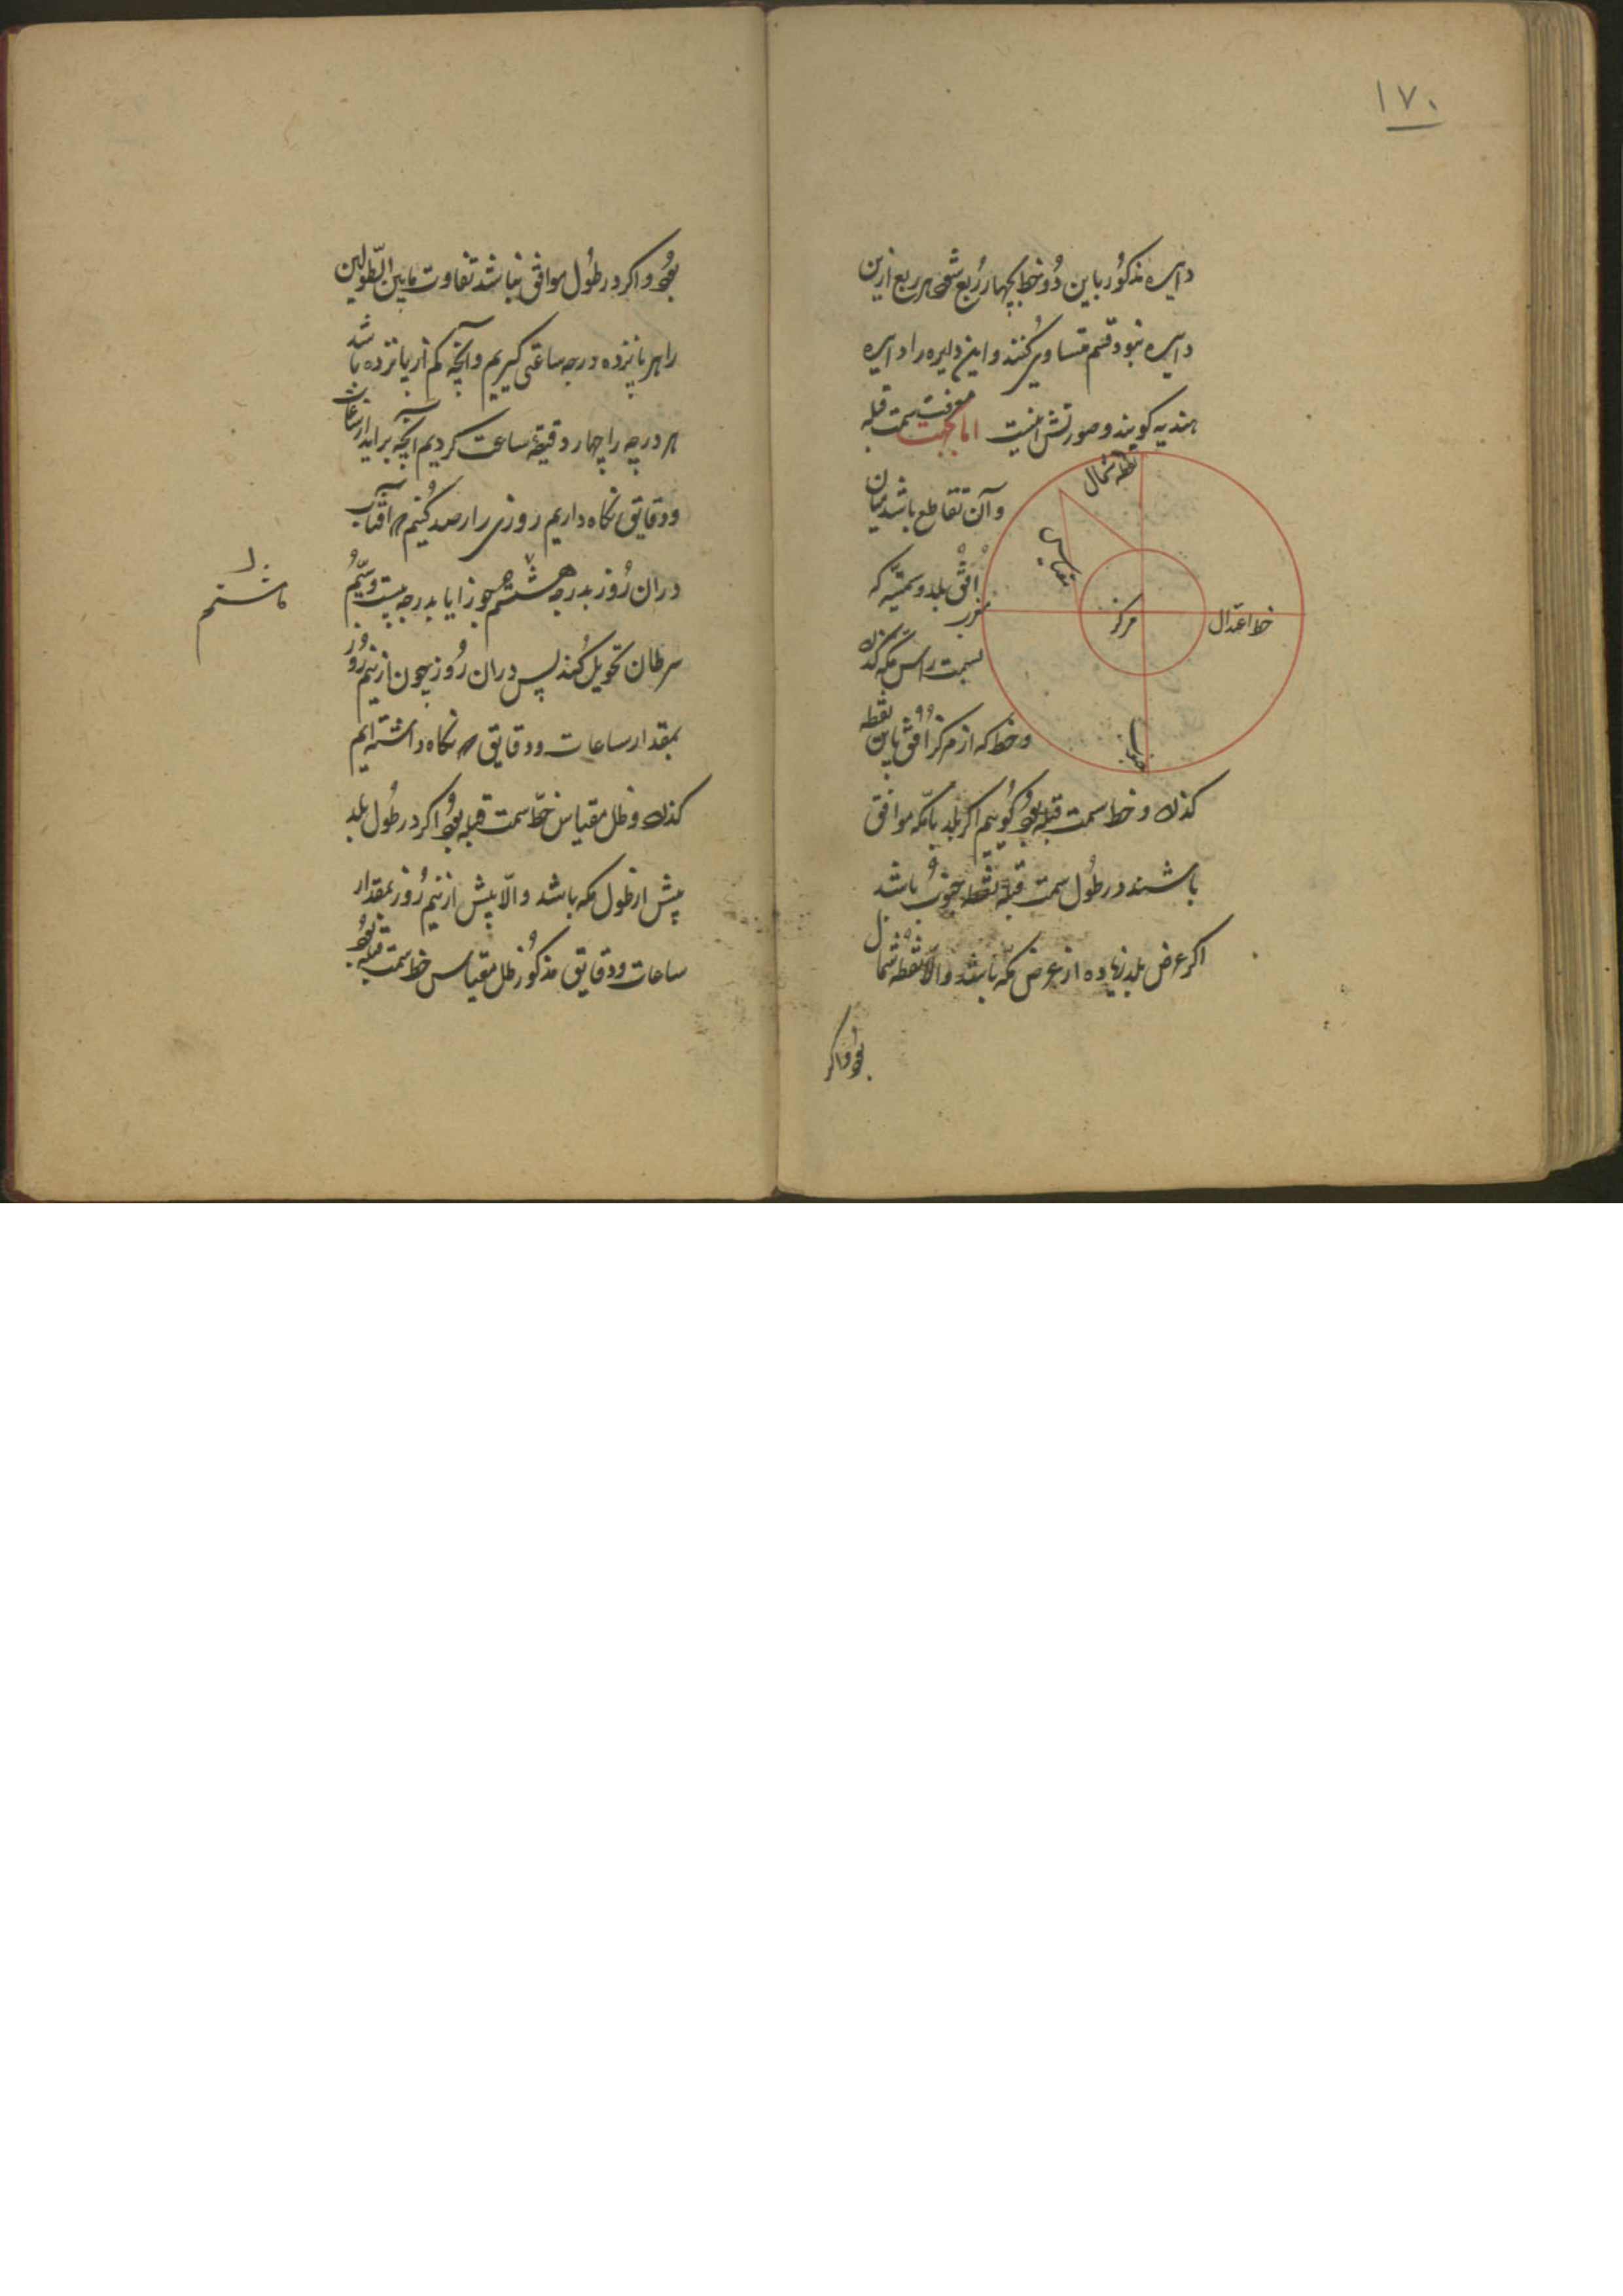 ۱۷۰
دایره مذکور باین دو خط بچهار ربع شود هر ربع ازین
دایره بنود قسم متساوی کنند و این دایره را دایره
هندیه کویند و صورتش اینست اما جهت معرفت سمت قبله
نقطه شمال
مقیاس
مرکز
خط اعتدال
مغرب
جنوب
و آن تقاطع باشد میان
افق بلد و سمتیه که
بسمت راس مکه کذرد
و خط که از مرکز افق باین نقطه
کذرد خط سمت قبله بود کوییم اکر بلد با مکه موافق
باشند در طول سمت قبله نقطه جنوب باشد
اکر عرض بلد زیاده از عرض مکه باشد والا نقطه شمال
بود و اکر
بود و اکر در طول موافق نباشد تفاوت ما بین الطولین
را هر پانزده درجه ساعتی کیریم و آنچه کم از پانزده باشد
هر درجه را چهار دقیقه ساعت کردیم آنچه براید از ساعات
و دقایق نکاه داریم روزی را رصد کنیم که آفتاب
در ان روز بدرجه هشتم جوزا یا بدرجه بیست و سیم
سرطان تحویل کند پس در ان روز چون از نیم روز
بمقدار ساعات و دقایق که نکاه داشته ایم
کذرد ظل مقیاس خط سمت قبله بود اکر در طول بلد
پیش از طول مکه باشد والا پیش از نیم روز بمقدار
ساعات و دقایق مذکور ظل مقیاس خط سمت قبله بود